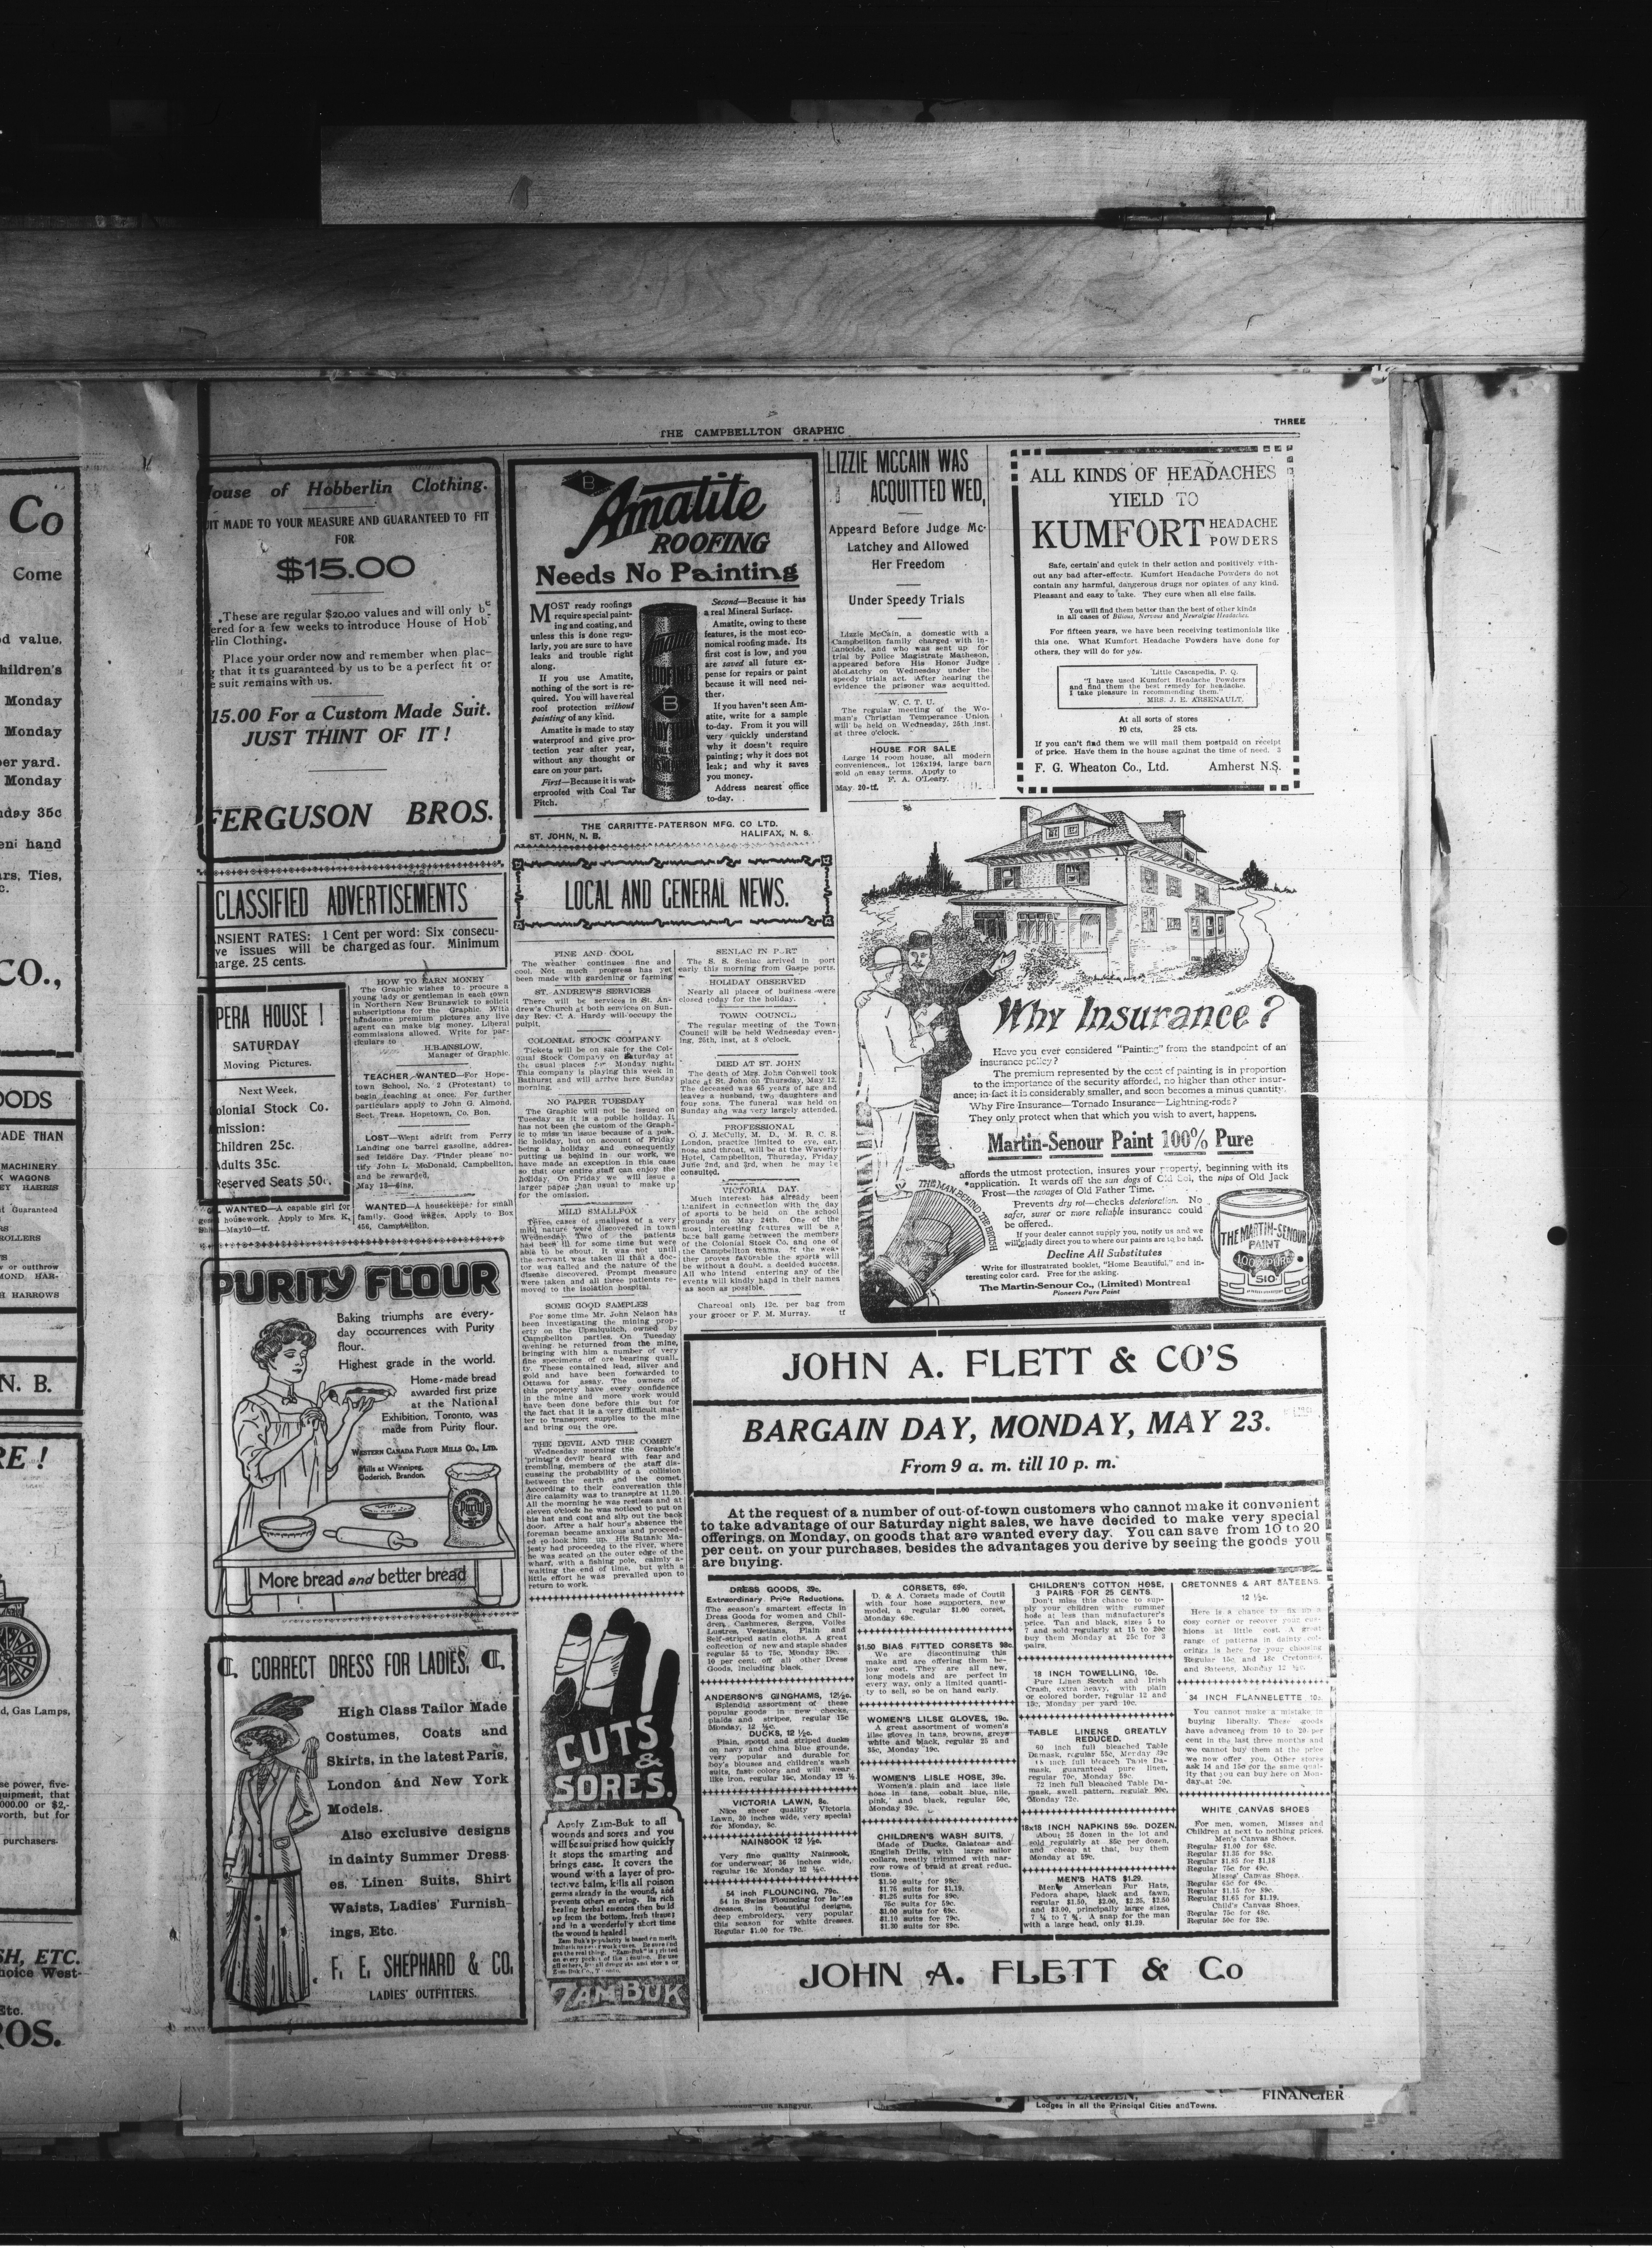 THE CAMPBELLTON GRAPHIC
THREE
Co
Come
d value.
hildren's
Monday
Monday
per yard.
Monday
nday 35c
hand
rs, Ties,
CO.,
OODS
ADE THAN
MACHINERY
WAGONS
HARRIS
Guaranteed
ROLLERS
or outthrow
HARROWS
N. B.
RE !
d, Gas Lamps,
se power, five-
uipment, that
000.00 or $2,-
worth, but for
purchasers.
SH, ETC.
hoice West-
Etc.
ROS.
ouse of Hobberlin Clothing.
IT MADE TO YOUR MEASURE AND GUARANTEED TO FIT
FOR
$15.00
These are regular $20.00 values and will only be
ered for a few weeks to introduce House of Hob-
rlin Clothing.
Place your order now and remember when plac-
g that its guaranteed by us to be a perfect fit or
e suit remains with us.
15.00 For a Custom Made Suit.
JUST THINT OF IT !
FERGUSON BROS.
CLASSIFIED ADVERTISEMENTS
ANSIENT RATES: 1 Cent per word: Six consecu-
ve issues will be charged as four. Minimum
harge. 25 cents.
PERA HOUSE !
SATURDAY
Moving Pictures.
Next Week,
olonial Stock Co.
mission:
Children 25c.
Adults 35c.
Reserved Seats 50c.
WANTED—A capable girl for
housework. Apply to Mrs. K.
—May10—tf.
HOW TO EARN MONEY
The Graphic wishes to procure a
young lady or gentleman in each town
in Northern New Brunswick to solicit
subscriptions for the Graphic. With
handsome premium pictures any live
agent can make big money. Liberal
commissions allowed. Write for par-
ticulars to
H.B.ANSLOW,
Manager of Graphic.
TEACHER WANTED—For Hope-
town School, No. 2 (Protestant) to
begin teaching at once. For further
particulars apply to John G. Almond,
Sect. Treas. Hopetown, Co. Bon.
LOST—Went adrift from Ferry
Landing one barrel gasoline, addres-
sed Isidore Day. Finder please no-
tify John L. McDonald, Campbellton,
and be rewarded.
May 13—6ins.
WANTED—A housekeeper for small
family. Good wages. Apply to Box
456, Campbellton.
PURITY FLOUR
Baking triumphs are every-
day occurrences with Purity
flour.
Highest grade in the world.
Home-made bread
awarded first prize
at the National
Exhibition, Toronto, was
made from Purity flour.
WESTERN CANADA FLOUR MILLS CO., LTD.
Mills at Winnipeg,
Goderich, Brandon.
Purity
More bread and better bread
CORRECT DRESS FOR LADIES.
High Class Tailor Made
Costumes, Coats and
Skirts, in the latest Paris,
London and New York
Models.
Also exclusive designs
in dainty Summer Dress-
es, Linen Suits, Shirt
Waists, Ladies' Furnish-
ings, Etc.
F. E. SHEPHARD & CO.
LADIES' OUTFITTERS.
B
Amatite
ROOFING
Needs No Painting
MOST ready roofings
require special paint-
ing and coating, and
unless this is done regu-
larly, you are sure to have
leaks and trouble right
along.
If you use Amatite,
nothing of the sort is re-
quired. You will have real
roof protection without
painting of any kind.
Amatite is made to stay
waterproof and give pro-
tection year after year,
without any thought or
care on your part.
First—Because it is wat-
erproofed with Coal Tar
Pitch.
Second—Because it has
a real Mineral Surface.
Amatite, owing to these
features, is the most eco-
nomical roofing made. Its
first cost is low, and you
are saved all future ex-
pense for repairs or paint
because it will need nei-
ther.
If you haven't seen Am-
atite, write for a sample
to-day. From it you will
very quickly understand
why it doesn't require
painting; why it does not
leak; and why it saves
you money.
Address nearest office
to-day.
THE CARRITTE-PATERSON MFG. CO LTD.
ST. JOHN, N. B. HALIFAX, N. S.
LOCAL AND GENERAL NEWS.
FINE AND COOL
The weather continues fine and
cool. Not much progress has yet
been made with gardening or farming
ST. ANDREW'S SERVICES
There will be services in St. An-
drew's Church at both services on Sun-
day Rev. C. A. Hardy will occupy the
pulpit.
COLONIAL STOCK COMPANY
Tickets will be on sale for the Col-
onial Stock Company on Saturday at
the usual places for Monday night.
This company is playing this week in
Bathurst and will arrive here Sunday
morning.
NO PAPER TUESDAY
The Graphic will not be issued on
Tuesday as it is a public holiday. It
has not been the custom of the Graph-
ic to miss an issue because of a pub-
lic holiday, but on account of Friday
being a holiday and consequently
putting us behind in our work, we
have made an exception in this case
so that our entire staff can enjoy the
holiday. On Friday we will issue a
larger paper than usual to make up
for the omission.
MILD SMALLPOX
Three cases of smallpox of a very
mild nature were discovered in town
Wednesday. Two of the patients
had been ill for some time but were
able to be about. It was not until
the servant was taken ill that a doc-
tor was called and the nature of the
disease discovered. Prompt measure
were taken and all three patients re-
moved to the isolation hospital.
SOME GOOD SAMPLES
For some time Mr. John Nelson has
been investigating the mining prop-
erty on the Upsalquitch, owned by
Campbellton parties. On Tuesday
evening he returned from the mine,
bringing with him a number of very
fine specimens of ore bearing quali-
ty. These contained lead, silver and
gold and have been forwarded to
Ottawa for assay. The owners of
this property have every confidence
in the mine and more work would
have been done before this but for
the fact that it is a very difficult mat-
ter to transport supplies to the mine
and bring out the ore.
THE DEVIL AND THE COMET
Wednesday morning the Graphic's
'printer's devil' heard with fear and
trembling, members of the staff dis-
cussing the probability of a collision
between the earth and the comet.
According to their conversation this
dire calamity was to transpire at 11.20.
All the morning he was restless and at
eleven o'clock he was noticed to put on
his hat and coat and slip out the back
door. After a half hour's absence the
foreman became anxious and proceed-
ed to look him up. His Satanic Ma-
jesty had proceeded to the river, where
he was seated on the outer edge of the
wharf, with a fishing pole, calmly a-
waiting the end of time, but with a
little effort he was prevailed upon to
return to work.
CUTS
&
SORES.
Apply Zam-Buk to all
wounds and sores and you
will be surprised how quickly
it stops the smarting and
brings ease. It covers the
wound with a layer of pro-
tective balm, kills all poison
germs already in the wound, and
prevents others entering. Its rich
healing herbal essences then build
up from the bottom, fresh tissue;
and in a wonderfully short time
the wound is healed!
Zam Buk's popularity is based on merit.
ZAM-BUK
SENLAC IN PORT
The S. S. Senlac arrived in port
early this morning from Gaspe ports.
HOLIDAY OBSERVED
Nearly all places of business were
closed today for the holiday.
TOWN COUNCIL
The regular meeting of the Town
Council will be held Wednesday even-
ing, 25th, inst, at 8 o'clock.
DIED AT ST. JOHN
The death of Mrs. John Conwell took
place at St. John on Thursday, May 12.
The deceased was 65 years of age and
leaves a husband, two daughters and
four sons. The funeral was held on
Sunday and was very largely attended.
PROFESSIONAL
O. J. McCully, M. D., M. R. C. S.
London, practice limited to eye, ear,
nose and throat, will be at the Waverly
Hotel, Campbellton, Thursday, Friday
June 2nd, and 3rd, when he may be
consulted.
VICTORIA DAY.
Much interest has already been
manifest in connection with the day
of sports to be held on the school
grounds on May 24th. One of the
most interesting features will be a
base ball game between the members
of the Colonial Stock Co. and one of
the Campbellton teams. If the wea-
ther proves favorable the sports will
be without a doubt, a decided success.
All who intend entering any of the
events will kindly hand in their names
as soon as possible.
Charcoal only 12c. per bag from
your grocer or F. M. Murray. tf
LIZZIE MCCAIN WAS
ACQUITTED WED,
Appeard Before Judge Mc-
Latchey and Allowed
Her Freedom
Under Speedy Trials
Lizzie McCain, a domestic with a
Campbellton family charged with in-
fanticide, and who was sent up for
trial by Police Magistrate Matheson,
appeared before His Honor Judge
McLatchy on Wednesday under the
speedy trials act. After hearing the
evidence the prisoner was acquitted.
W. C. T. U.
The regular meeting of the Wo-
man's Christian Temperance Union
will be held on Wednesday, 25th inst.
at three o'clock.
HOUSE FOR SALE
Large 14 room house, all modern
conveniences, lot 126x194, large barn
sold on easy terms. Apply to
F. A. O'Leary.
May. 20-tf.
ALL KINDS OF HEADACHES
YIELD TO
KUMFORT HEADACHE
POWDERS
Safe, certain and quick in their action and positively with-
out any bad after-effects. Kumfort Headache Powders do not
contain any harmful, dangerous drugs nor opiates of any kind.
Pleasant and easy to take. They cure when all else fails.
You will find them better than the best of other kinds
in all cases of Bilious, Nervous and Neuralgic Headaches.
For fifteen years, we have been receiving testimonials like
this one. What Kumfort Headache Powders have done for
others, they will do for you.
Little Cascapedia, P. Q.
"I have used Kumfort Headache Powders
and find them the best remedy for headache.
I take pleasure in recommending them."
MRS. J. E. ARSENAULT.
At all sorts of stores
10 cts. 25 cts.
If you can't find them we will mail them postpaid on receipt
of price. Have them in the house against the time of need. 3
F. G. Wheaton Co., Ltd. Amherst N.S.
Why Insurance?
Have you ever considered "Painting" from the standpoint of an
insurance policy?
The premium represented by the cost of painting is in proportion
to the importance of the security afforded, no higher than other insur-
ance; in fact it is considerably smaller, and soon becomes a minus quantity.
Why Fire Insurance—Tornado Insurance—Lightning-rods?
They only protect when that which you wish to avert, happens.
Martin-Senour Paint 100% Pure
affords the utmost protection, insures your property, beginning with its
application. It wards off the sun dogs of Old Sol, the nips of Old Jack
Frost—the ravages of Old Father Time.
Prevents dry rot—checks deterioration. No
safer, surer or more reliable insurance could
be offered.
If your dealer cannot supply you, notify us and we
will gladly direct you to where our paints are to be had.
Decline All Substitutes
Write for illustrated booklet, "Home Beautiful," and in-
teresting color card. Free for the asking.
The Martin-Senour Co., (Limited) Montreal
Pioneers Pure Paint
THE MAN BEHIND THE BRUSH
THE MARTIN-SENOUR
PAINT
100% PURE
510
JOHN A. FLETT & CO'S
BARGAIN DAY, MONDAY, MAY 23.
From 9 a. m. till 10 p. m.
At the request of a number of out-of-town customers who cannot make it convenient
to take advantage of our Saturday night sales, we have decided to make very special
offerings, on Monday, on goods that are wanted every day. You can save from 10 to 20
per cent. on your purchases, besides the advantages you derive by seeing the goods you
are buying.
DRESS GOODS, 39c.
Extraordinary Price Reductions.
The season's smartest effects in
Dress Goods for women and Chil-
dren. Cashmeres, Serges, Voiles
Lustres, Venetians, Plain and
Self-striped satin cloths. A great
collection of new and staple shades
regular 55 to 75c, Monday 39c.
10 per cent. off all other Dress
Goods, including black.
ANDERSON'S GINGHAMS, 12½c.
Splendid assortment of these
popular goods in new checks,
plaids and stripes, regular 15c
Monday, 12 ½c.
DUCKS, 12 ½c.
Plain, spottd and striped ducks
on navy and china blue grounds,
very popular and durable for
boy's blouses and children's wash
suits, fast colors and will wear
like iron, regular 15c, Monday 12 ½
VICTORIA LAWN, 8c.
Nice sheer quality Victoria
Lawn, 30 inches wide, very special
for Monday, 8c.
NAINSOOK 12 ½c.
Very fine quality Nainsook,
for underwear, 36 inches wide,
regular 16c Monday 12 ½c.
54 inch FLOUNCING, 79c.
54 in Swiss Flouncing for ladies
dresses, in beautiful designs,
deep embroidery, very popular
this season for white dresses.
Regular $1.00 for 79c.
CORSETS, 69c.
D. & A. Corsets made of Coutil
with four hose supporters, new
model, a regular $1.00 corset,
Monday 69c.
$1.50 BIAS FITTED CORSETS 98c.
We are discontinuing this
make and are offering them be-
low cost. They are all new,
long models and are perfect in
every way, only a limited quanti-
ty to sell, so be on hand early.
WOMEN'S LILSE GLOVES, 19c.
A great assortment of women's
lilse gloves in tans, browns, greys
white and black, regular 25 and
35c, Monday 19c.
WOMEN'S LISLE HOSE, 39c.
Women's plain and lace lisle
hose in tans, cobalt blue, nile,
pink, and black, regular 50c,
Monday 39c.
CHILDREN'S WASH SUITS,
Made of Ducks, Galateas and
English Drills, with large sailor
collars, neatly trimmed with nar-
row rows of braid at great reduc-
tions.
$1.50 suits for 98c.
$1.75 suits for $1.19.
$1.25 suits for 89c.
75c suits for 59c.
$1.00 suits for 69c.
$1.10 suits for 79c.
$1.30 suits for 89c.
CHILDREN'S COTTON HOSE,
3 PAIRS FOR 25 CENTS.
Don't miss this chance to sup-
ply your children with summer
hose at less than manufacturer's
price. Tan and black, sizes 5 to
7 and sold regularly at 15 to 20c
buy them Monday at 25c for 3
pairs.
18 INCH TOWELLING, 10c.
Pure Linen Scotch and Irish
Crash, extra heavy, with plain
or colored border, regular 12 and
13c, Monday per yard 10c.
TABLE LINENS GREATLY
REDUCED.
60 inch full bleached Table
Damask, regular 55c, Monday 39c
inch full bleach Table Da-
mask, guaranteed pure linen,
regular 70c, Monday 59c.
72 inch full bleached Table Da-
mask, swell pattern, regular 90c,
Monday 72c.
18x18 INCH NAPKINS 59c. DOZEN.
About 25 dozen in the lot and
sold regularly at 85c per dozen,
and cheap at that, buy them
Monday at 59c.
MEN'S HATS $1.29.
Men's American Fur Hats,
Fedora shape, black and fawn,
regular $1.50, $2.00, $2.25, $2.50
and $3.00, principally large sizes,
7 ¼ to 7 ¾. A snap for the man
with a large head, only $1.29.
CRETONNES & ART SATEENS.
12 ½c.
Here is a chance to fix up a
cosy corner or recover your cus-
hions at little cost. A great
range of patterns in dainty col-
orings is here for your choosing
Regular 15c and 18c Cretonnes,
and Sateens, Monday 12 ½c.
34 INCH FLANNELETTE 10c.
You cannot make a mistake in
buying liberally. These goods
have advanced from 10 to 20 per
cent in the last three months and
we cannot buy them at the price
we now offer you. Other stores
ask 14 and 15c for the same qual-
ity that you can buy here on Mon-
day at 10c.
WHITE CANVAS SHOES
For men, women, Misses and
Children at next to nothing prices.
Men's Canvas Shoes.
Regular $1.00 for 68c.
Regular $1.35 for 98c.
Regular $1.85 for $1.18
Regular 75c for 49c.
Misses' Canvas Shoes.
Regular 65c for 49c.
Regular $1.15 for 89c.
Regular $1.65 for $1.19.
Child's Canvas Shoes.
Regular 75c for 48c.
Regular 50c for 39c.
JOHN A. FLETT & Co
FINANCIER
Lodges in all the Principal Cities and Towns.